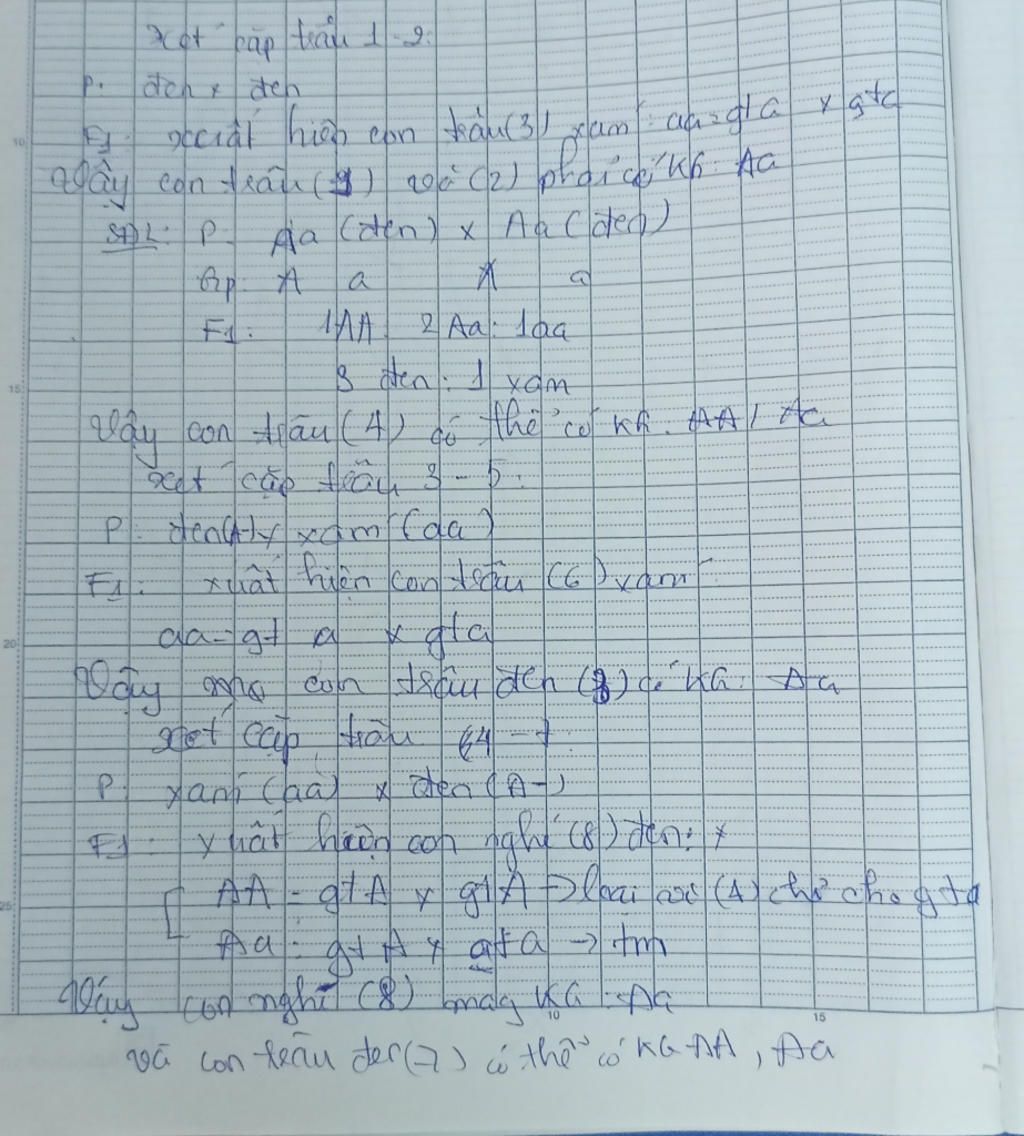 xét cặp trâu 1-2:
P: đen x đen
F1: xuất hiện con trâu(3) xám: aa = gta x gta
Vậy con trâu (1) và (2) phải có KG: Aa
SĐL: P Aa (đen) x Aa (đen)
Gp: A a A a
F1: 1AA 2Aa: 1aa
3 đen: 1 xám
Vậy con trâu (4) có thể có KG. AA / Aa
xét cặp trâu 3-5:
P: đen(A-) x xám (aa)
F1: xuất hiện con trâu (6) xám
aa = gt a x gta
Vậy con trâu đen (3) có KG: Aa
xét cặp trâu 4-7:
P: xám (aa) x đen (A-)
F1: xuất hiện con nghé (8) đen: x
AA = gtA x gtA → loại (4) chỉ cho gta
Aa: gt A x gta → tm
Vậy con nghé (8) mang KG: Aa
10 15
và con trâu đen(7) có thể có KG AA, Aa
10
15
20
25